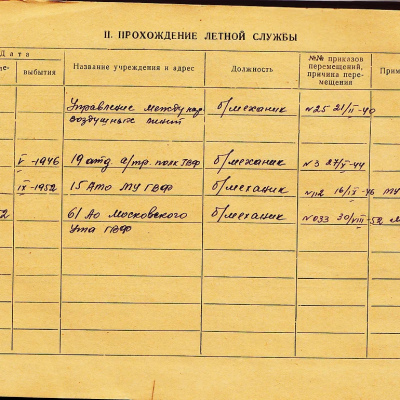 II. ПРОХОЖДЕНИЕ ЛЕТНОЙ СЛУЖБЫ
Дата
выбытия
Название учреждения и адрес
Должность
№№ приказов
перемещений,
причина пере-
мещения
Прим
Управление междунар
воздушных линий
б/механик
№25 21/II-40
V-1946
19 отд а/тр. полк ГВФ
б/механик
IX-1952
15 Ато МУ ГВФ
б/механик
№112 16/IX-46
2
61 Ао Московского
Ута ГВФ
б/механик
№033 30/VIII-52